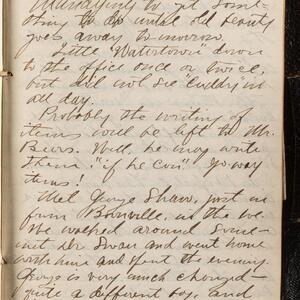 thing to do until old beauty
goes away tomorrow.
Little "Watertown" down
to the office once or twice,
but did not see "Cuddy" in
all day.
Probably the writing of
items will be left to Mr.
Beers. Well, he may write
them, "if he con". Go way
items!
Met George Shaw, just in
from Bonville, in the eve.
We walked around some-
met her Swan and went home
with him and spent the evening.
George is very much changed-
quite a different boy, and